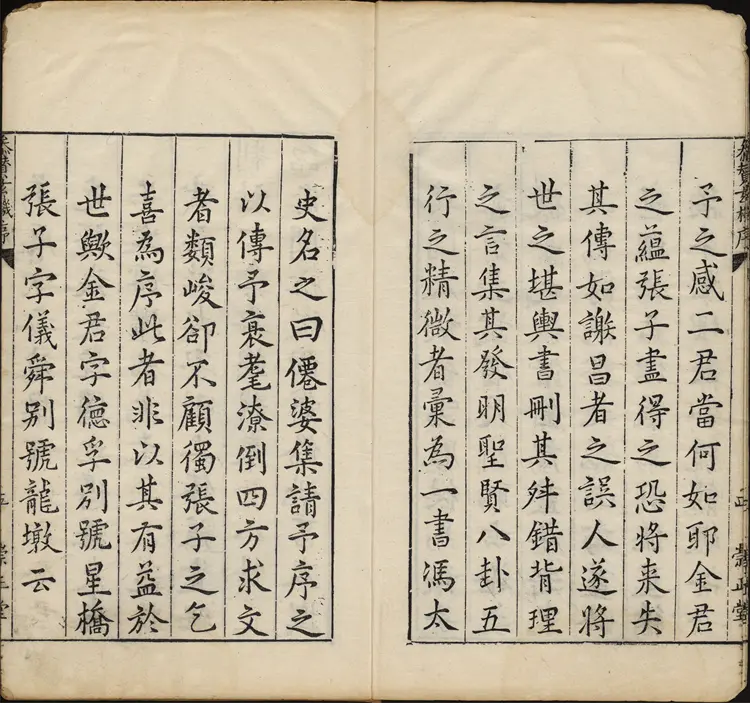 予之感二君當何如耶金君
之蘊張子盡得之恐將来失
其傳如謝昌者之誤人遂將
世之堪輿書刪其舛錯背理
之言集其發明聖賢八卦五
行之精微者彙為一書馮太
史名之曰僊婆集請予序之
以傳予衰耄潦倒四方求文
者類峻卻不顧獨張子之乞
喜為序此者非以其有益於
世歟金君字德孚別號星橋
張子字儀舜別號龍墩云